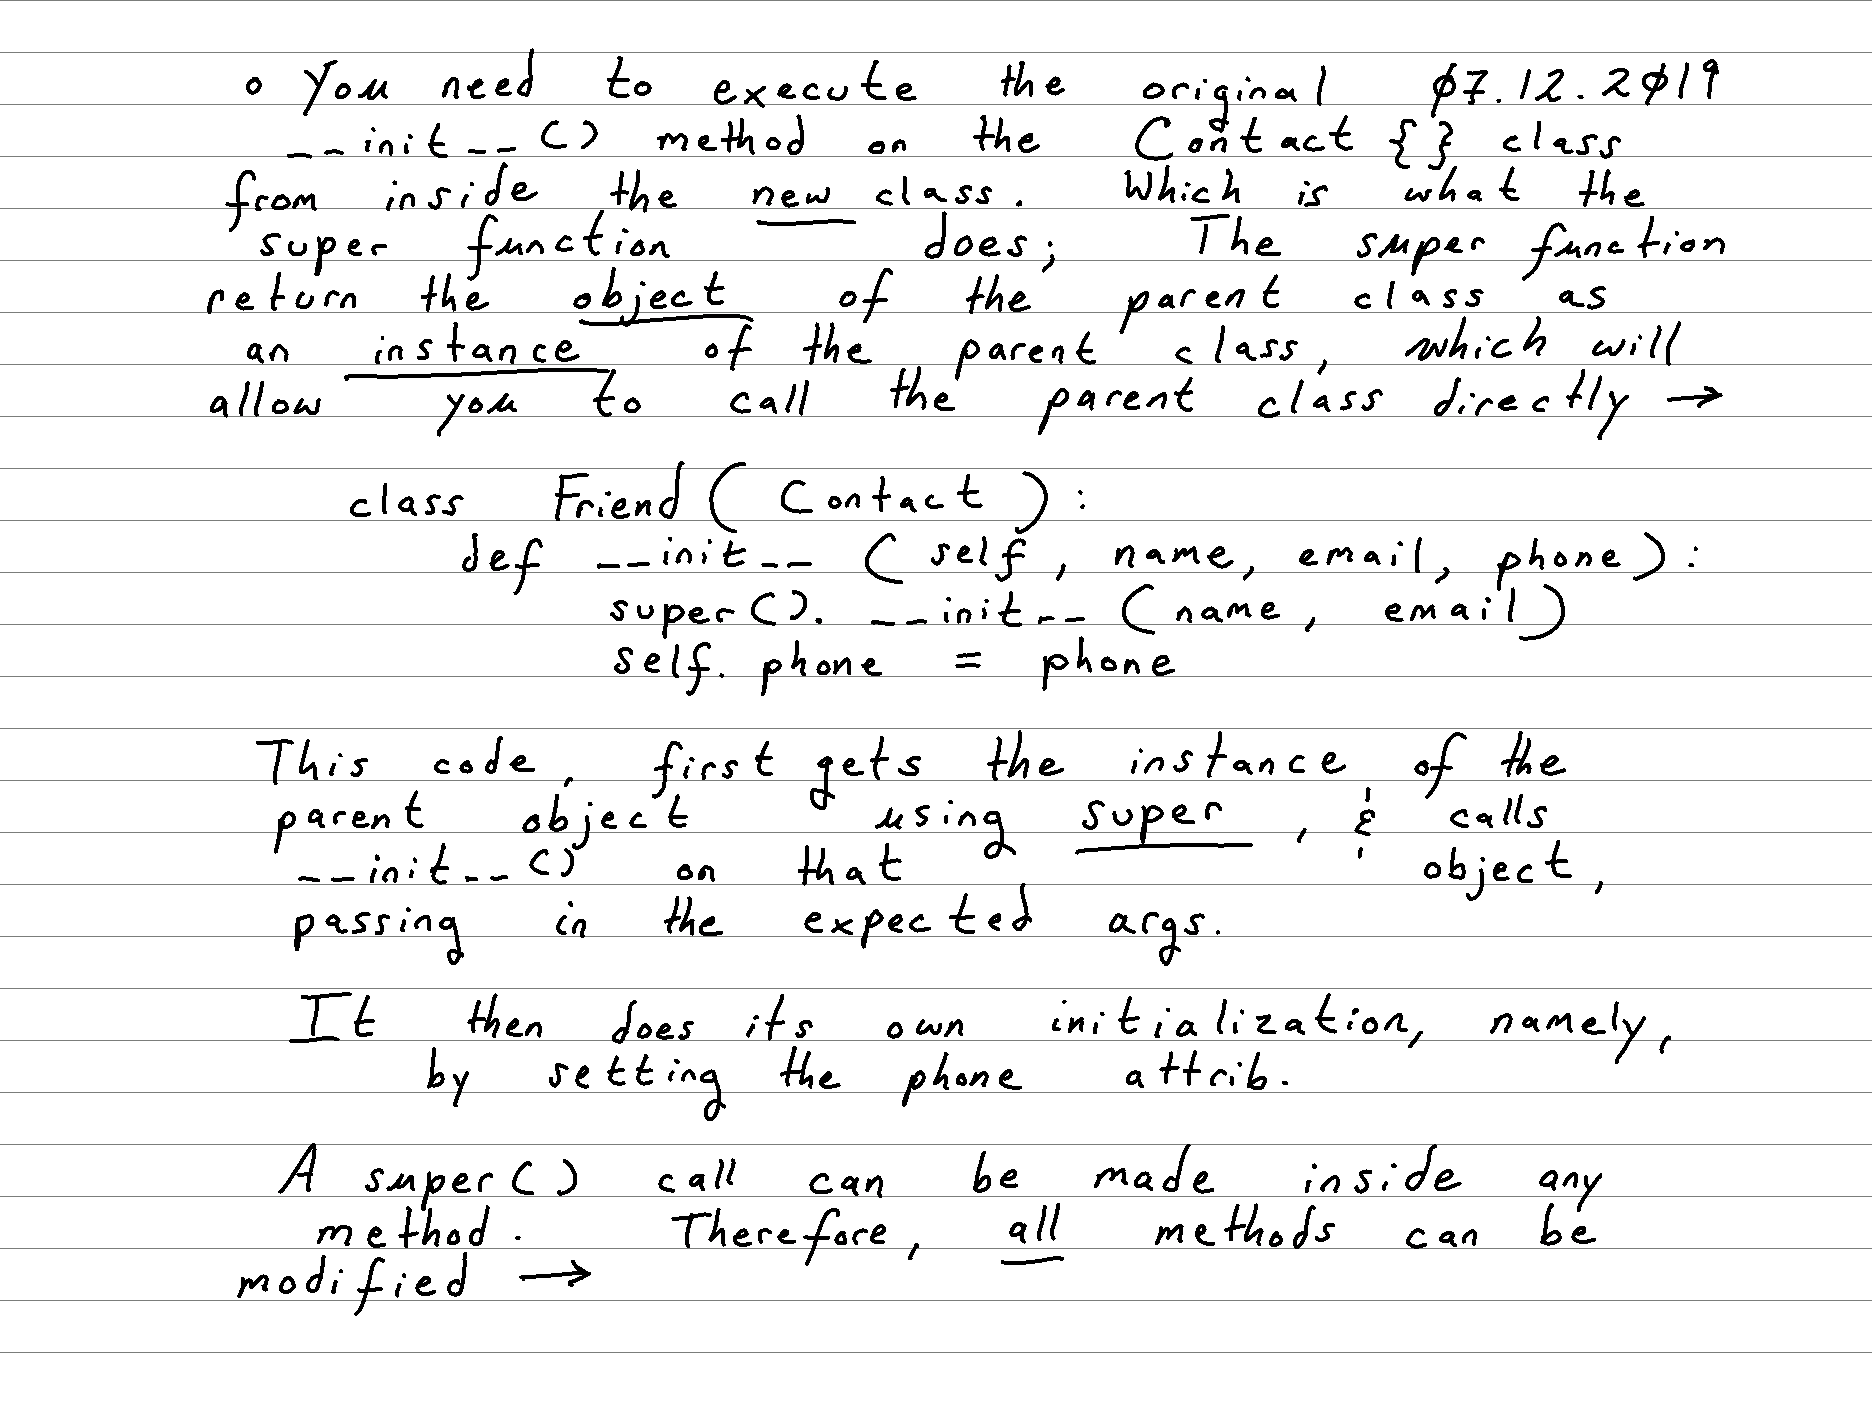 o You need to execute the original 07.12.2019
__init__() method on the Contact {} class
from inside the new class. Which is what the
super function does; The super function
return the object of the parent class as
an instance of the parent class, which will
allow you to call the parent class directly →
class Friend ( Contact ) :
def __init__ ( self , name, email, phone ) :
super(). __init__ ( name , email )
self. phone = phone
This code, first gets the instance of the
parent object using super , & calls
__init__() on that object,
passing in the expected args.
It then does its own initialization, namely,
by setting the phone attrib.
A super() call can be made inside any
method. Therefore, all methods can be
modified →